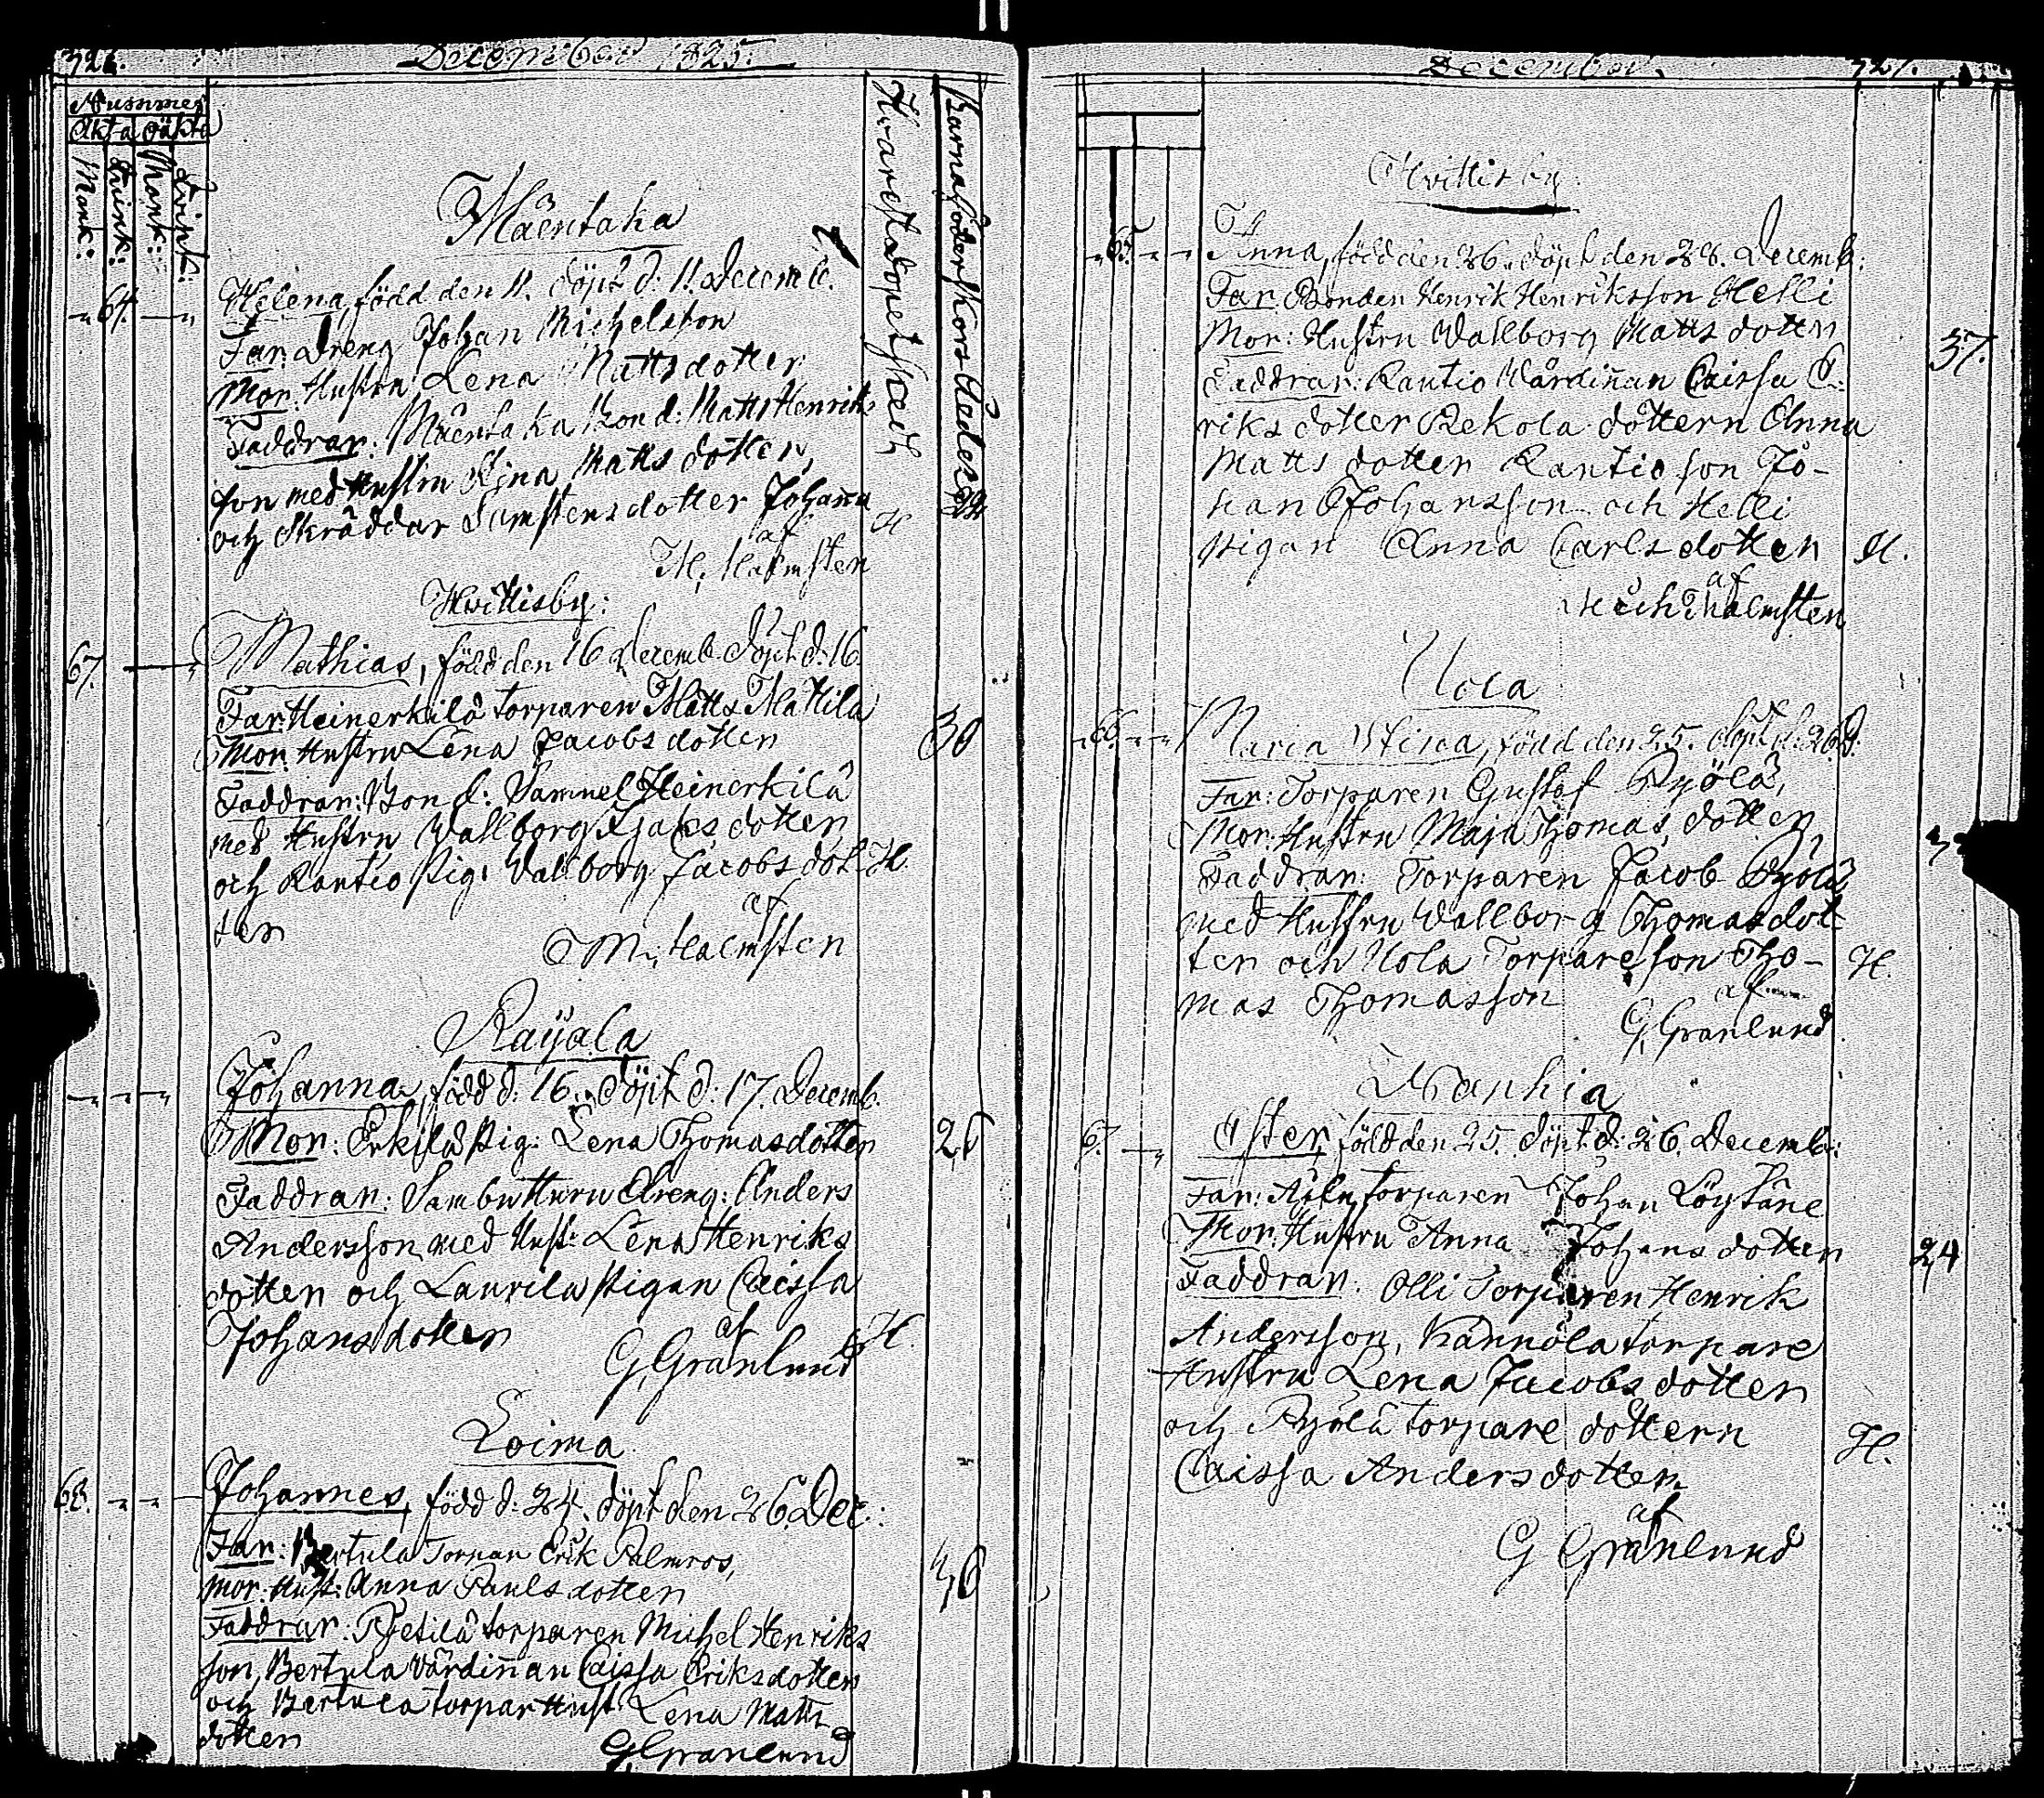 December 1825.
Nummer
Äkta Oäkta
Mank:
Quink:
Mank:
Qvink:
Hvarest döpet skedt
Barnafoderskors Ålder
Mäentaka
64. Helena, född den 11. döpt d: 11. Decemb.
Far: Dreng Johan Michelsson
Mor: Hustru Lena Mattsdotter
Faddrar: Mäentaka Bond: Matts Henriks
son med Hustru Stina Mattsdotter,
och Skräddar Sumstens dotter Johanna
H
af
M. Malmsten
Hvittisby:
67. Mathias, född den 16 Decemb. döpt d: 16.
Far: Heinerkilä torparen Matts Mattila
Mor: Hustru Lena Jacobsdotter
30
Faddrar: Bond: Samuel Heinerkilä
med Hustru Wallborg dotter
och Rantio Pig: Vallborg Jacobsdot-
H.
ter
af
M. Malmsten
Raijala
Johanna, född d: 16. döpt d: 17. Decemb.
Mor: Erkilä Pig: Lena Thomasdotter
26
Faddrar: Sambutturu Dreng: Anders
Andersson med Hust: Lena Henriks
dotter och Laurila Pigan Caissa
Johansdotter
H.
af
G. Granlund
Loima
68. Johannes, född d: 24. döpt den 26. Dec:
Far: Bertula Torpar Erik Palmros,
Mor: Hust: Anna Paulsdotter
36
Faddrar: Pietilä torparen Michel Henriks
son, Bertula Värdinnan Caissa Eriksdotter
och Bertula torpar Hust: Lena Matts
dotter
G. Granlund
December. 727.
Hvittisby
65. Anna, född den 26. döpt den 28. Decemb:
Far: Bonden Henrik Henriksson Helli
Mor: Hustru Wallborg Mattsdotter
37.
Faddrar: Rantio Wärdinnan Caissa E-
riksdotter Rekola dottern Anna
Mattsdotter Rantio son Jo-
han Johansson och Helli
Pigan Anna Carlsdotter
H.
af
Malmsten
Uola
66. Maria Stina, född den 25. döpt d. 26 D:
Far: Torparen Gustaf Pyölä,
Mor: Hustru Maja Thomasdotter
Faddrar: Torparen Jacob Pyölä
med Hustru Wallborg Thomasdot-
ter och Uola Torpareson Tho-
H.
mas Thomasson
af
G. Granlund
Wanhia
67. Ester, född den 25. döpt d: 26. Decemb:
Far: torparen Johan Löytäne
Mor: Hustru Anna Johansdotter
24
Faddrar: Olli Torparen Henrik
Andersson, Kännölä torpare
Hustru Lena Jacobsdotter
och Pyölä torpare dottern
H.
Caissa Andersdotter
af
G Granlund